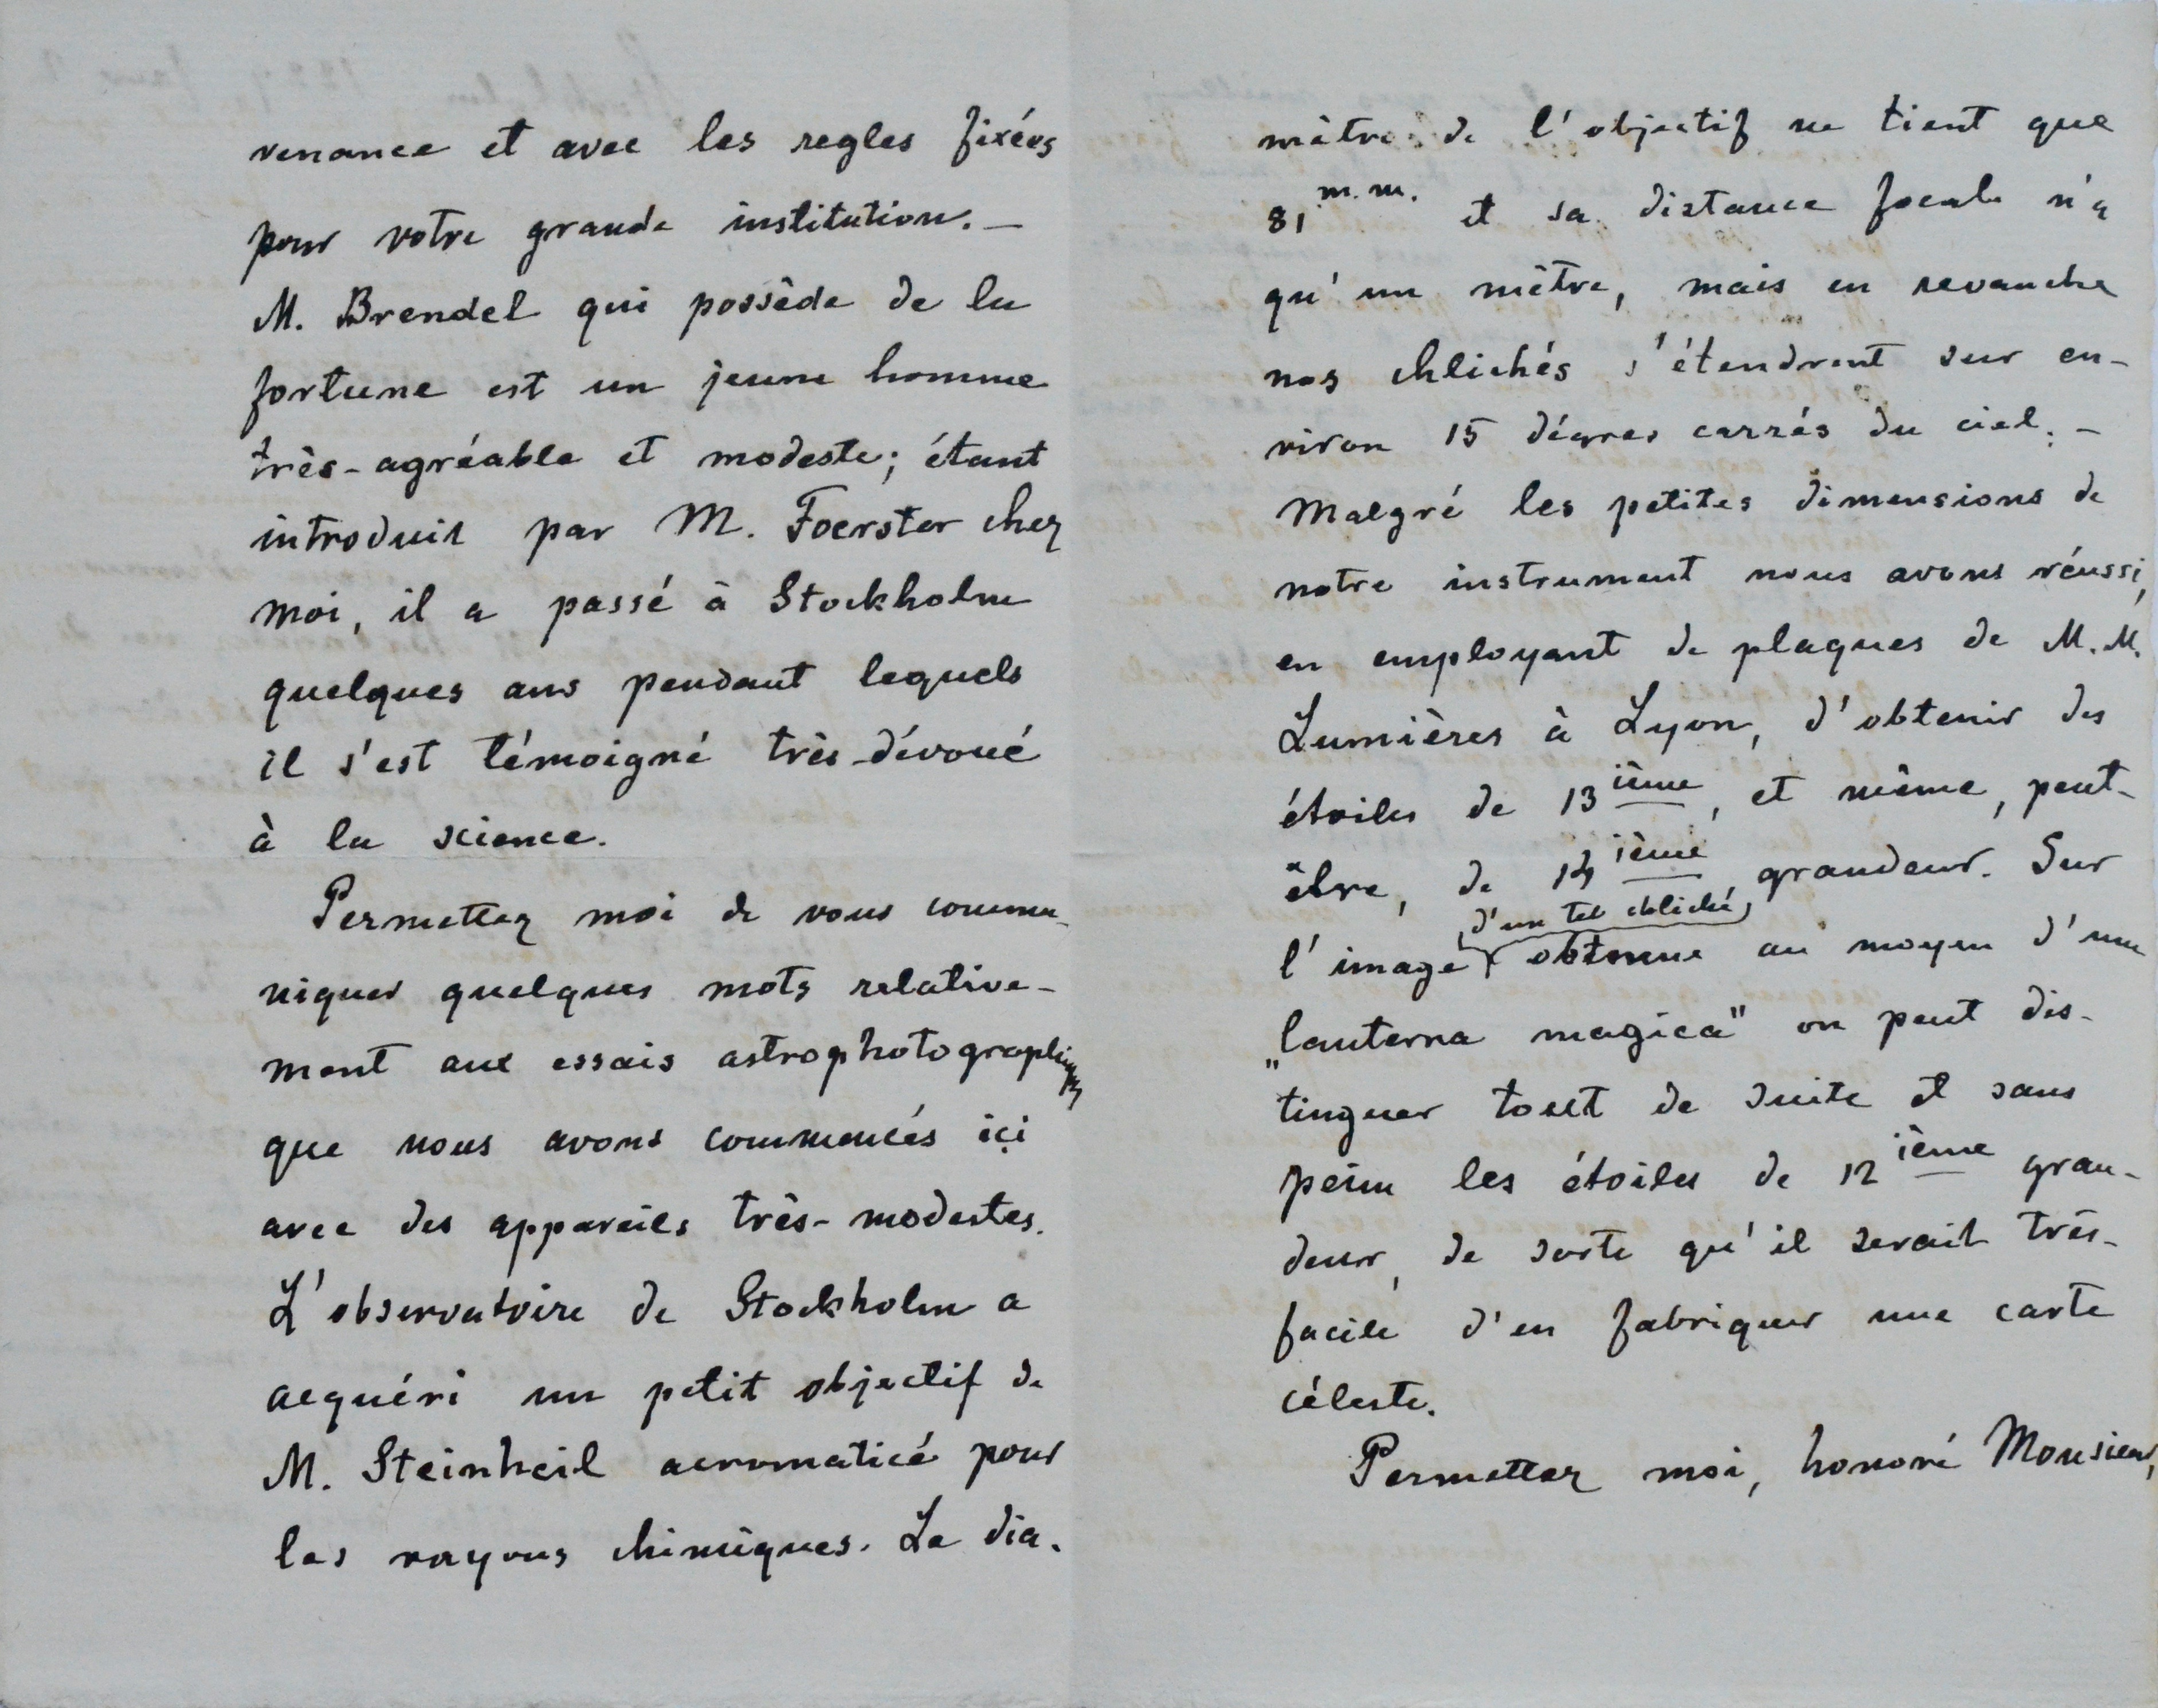 venance et avec les regles fixées
pour votre grande institution. —
M. Brendel qui possède de la
fortune est un jeune homme
très-agréable et modeste; étant
introduit par M. Foerster chez
moi, il a passé à Stockholm
quelques ans pendant lequels
il s'est témoigné très-dévoué
à la science.
Permettez moi de vous commu-
niquer quelques mots relative-
ment aux essais astrophotographiques
que nous avons commencés içi
avec des appareils très-modestes.
L'observatoire de Stockholm a
acquéri un petit objectif de
M. Steinheil acromaticé pour
les rayons chimiques. Le dia-
mètre de l'objectif ne tient que
81 m.m. et sa distance focale n'a
qu'un mètre, mais en revanche
nos chlichés s'étendrent sur en-
viron 15 dégres carrés du ciel. —
Malgré les petites dimensions de
notre instrument nous avons réussi,
en employant de plaques de M.M.
Lumières à Lyon, d'obtenir des
étoiles de 13ième, et même, peut-
être, de 14ième grandeur. Sur
l'image d'un tel chliché, obtenue au moyen d'une
„lanterna magica" on peut dis-
tinguer tout de suite et sans
peine les étoiles de 12ième gran-
deur, de sorte qu'il serait très-
facile d'en fabriquer une carte
céleste.
Permettez moi, honoré Monsieur,